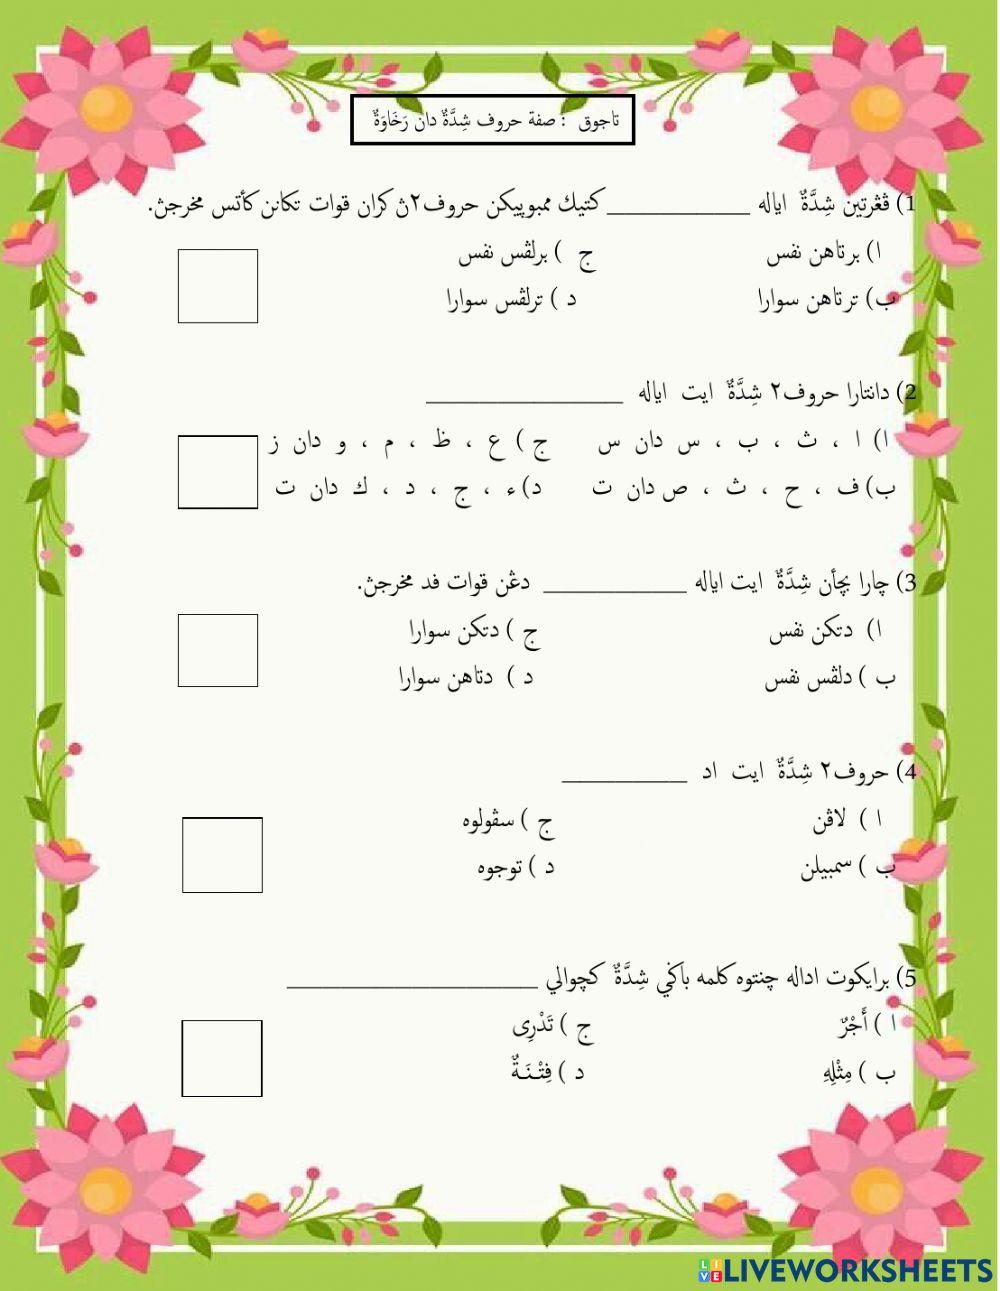 تاجوق : صفة حروف شِدَّةٌ دان رَخَاوَةٌ
1) ڤڠرتين شِدَّةٌ اياله ____________ كتيك ممبوڽيكن حروف٢ڽ كران قوات تكانن كأتس مخرجڽ.
ا) برتاهن نفس ج ) برلڤس نفس
ب) ترتاهن سوارا د ) ترلڤس سوارا
2) دانتارا حروف٢ شِدَّةٌ ايت اياله ________________
ا) ا ، ث ، ب ، س دان س ج ) ع ، ظ ، م ، و دان ز
ب) ف ، ح ، ث ، ص دان ت د) ء ، ج ، د ، ك دان ت
3) چارا بچأن شِدَّةٌ ايت اياله ____________ دڠن قوات فد مخرجڽ.
ا) دتكن نفس ج ) دتكن سوارا
ب ) دلڤس نفس د ) دتاهن سوارا
4) حروف٢ شِدَّةٌ ايت اد _____________
ا ) لاڤن ج ) سڤولوه
ب ) سمبيلن د ) توجوه
5) برايكوت اداله چنتوه كلمه باݢي شِدَّةٌ كچوالي _____________________
ا ) أَجْرٌ ج ) تَدْرِى
ب ) مِثْلِهِ د ) فِتْنَةٌ
LIVEWORKSHEETS